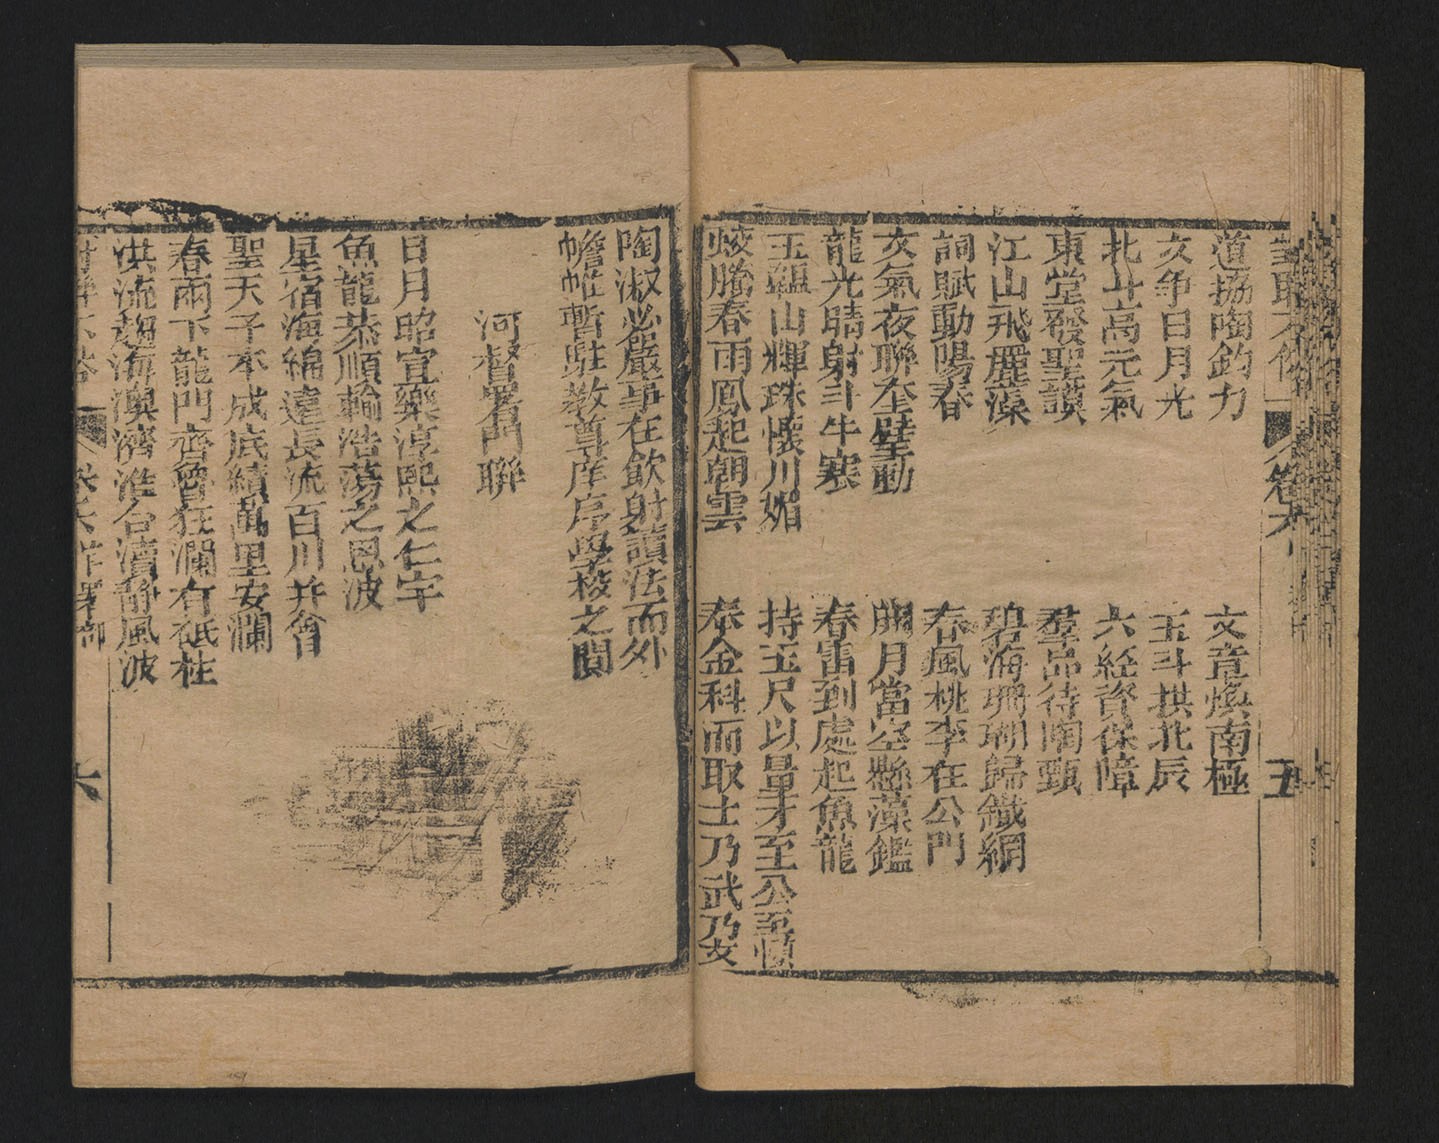 卷六
五
道協陶鈞力
文章煥南極
文爭日月光
玉斗拱北辰
北斗高元氣
六經資保障
東堂發聖讀
羣品待陶甄
江山飛麗藻
碧海珊瑚歸鐵網
詞賦動陽春
春風桃李在公門
文氣夜聯奎壁動
朗月當空縣藻鑑
龍光晴射斗牛寒
春雷到處起魚龍
玉韞山輝珠懷川媚
持玉尺以量才至公至慎
蛟騰春雨鳳起朝雲
奉金科而取士乃武乃文
陶淑必嚴事在飲射讀法而外
幨帷暫駐教尊庠序學校之間
河督署門聯
日月昭宣樂淳熙之仁宇
魚龍恭順輸浩蕩之恩波
星宿海綿遠長流百川并會
聖天子本成底績萬里安瀾
春雨下龍門齊魯狂瀾有砥柱
洪流趨海澳濟淮合瀆靜風波
六